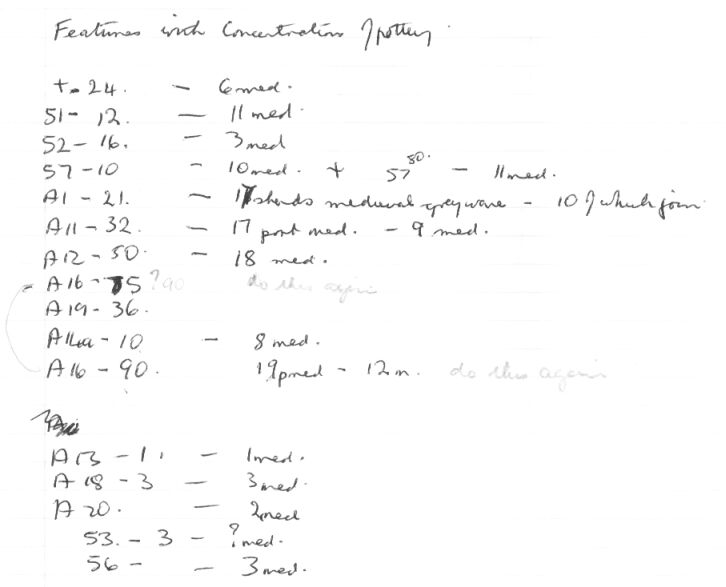 Features with Concentration of pottery
+ - 24. - 6 med.
51 - 12. - 11 med.
52 - 16. - 3 med
57 - 10 - 10 med. + 57 50. - 11 med.
A1 - 21. - 17 sherds medieval greyware - 10 of which join
A11 - 32. - 17 post med. - 9 med.
A12 - 50. - 18 med.
A16 - 75 ?90 do this again
A19 - 36.
A11a - 10 - 8 med.
A16 - 90. 19 pmed - 12 m. do this again
A13 - 1. - 1 med.
A18 - 3 - 3 med.
A20. - 2 med
53. - 3 - ? med.
56 - - 3 med.